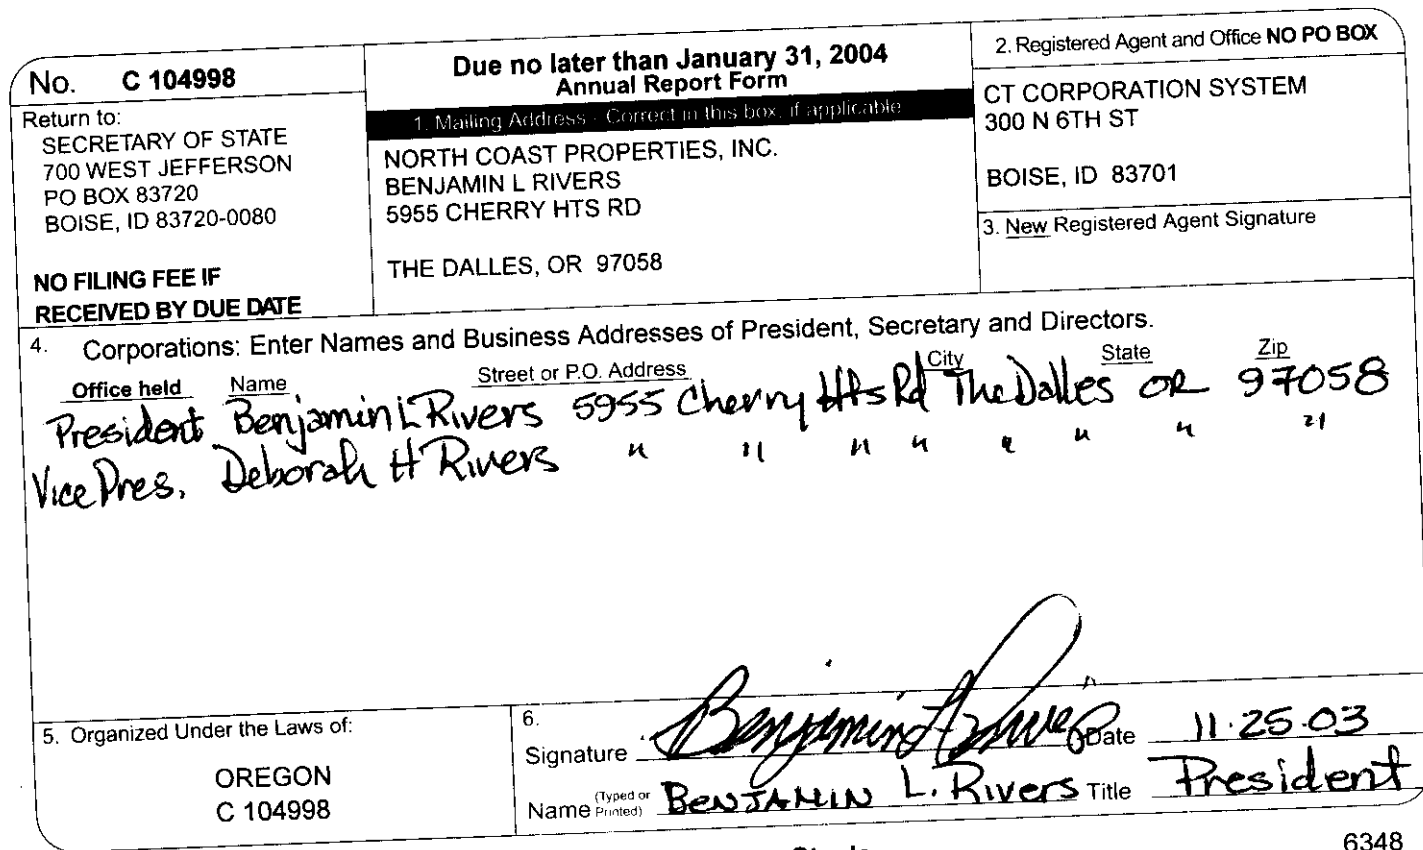 No. C 104998
Return to:
SECRETARY OF STATE
700 WEST JEFFERSON
PO BOX 83720
BOISE, ID 83720-0080
NO FILING FEE IF
RECEIVED BY DUE DATE
Due no later than January 31, 2004
Annual Report Form
1. Mailing Address - Correct in this box, if applicable
NORTH COAST PROPERTIES, INC.
BENJAMIN L RIVERS
5955 CHERRY HTS RD
THE DALLES, OR 97058
2. Registered Agent and Office NO PO BOX
CT CORPORATION SYSTEM
300 N 6TH ST
BOISE, ID 83701
3. New Registered Agent Signature
4. Corporations: Enter Names and Business Addresses of President, Secretary and Directors.
Office held Name Street or P.O. Address City State Zip
President Benjamin L Rivers 5955 Cherry Hts Rd The Dalles OR 97058
Vice Pres. Deborah H Rivers " " " " " " " "
5. Organized Under the Laws of:
OREGON
C 104998
6.
Signature Benjamin L Rivers Date 11.25.03
Name (Typed or Printed) BENJAMIN L. Rivers Title President
6348